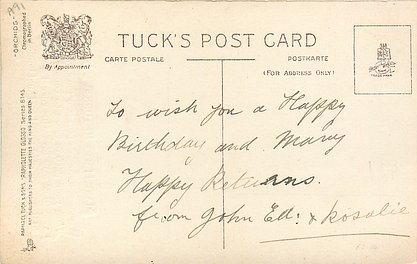 A91
"ORCHIDS"
Chromographed
in Berlin
By Appointment
TUCK'S POST CARD
CARTE POSTALE
POSTKARTE
(FOR ADDRESS ONLY)
To wish you a Happy
Birthday and Many
Happy Returns.
from John Ed: & Rosalie
RAPHAEL TUCK & SONS' "RAPHOLETTE GLOSSO" Series 8745
ART PUBLISHERS TO THEIR MAJESTIES THE KING AND QUEEN